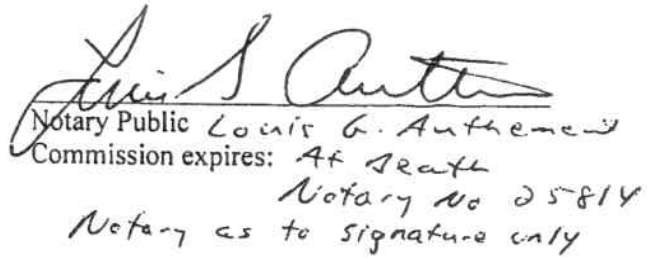 Notary Public Louis G. Authement
Commission expires: At Death
Notary No 25814
Notary as to signature only